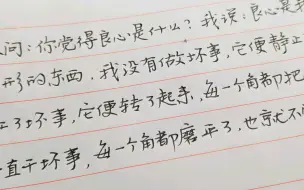 问：你觉得良心是什么？我说：良心是我
形的东西，我没有做坏事，它便静止
坏事，它便转了起来，每一个角都把
直干坏事，每一个角都磨平了，也就不